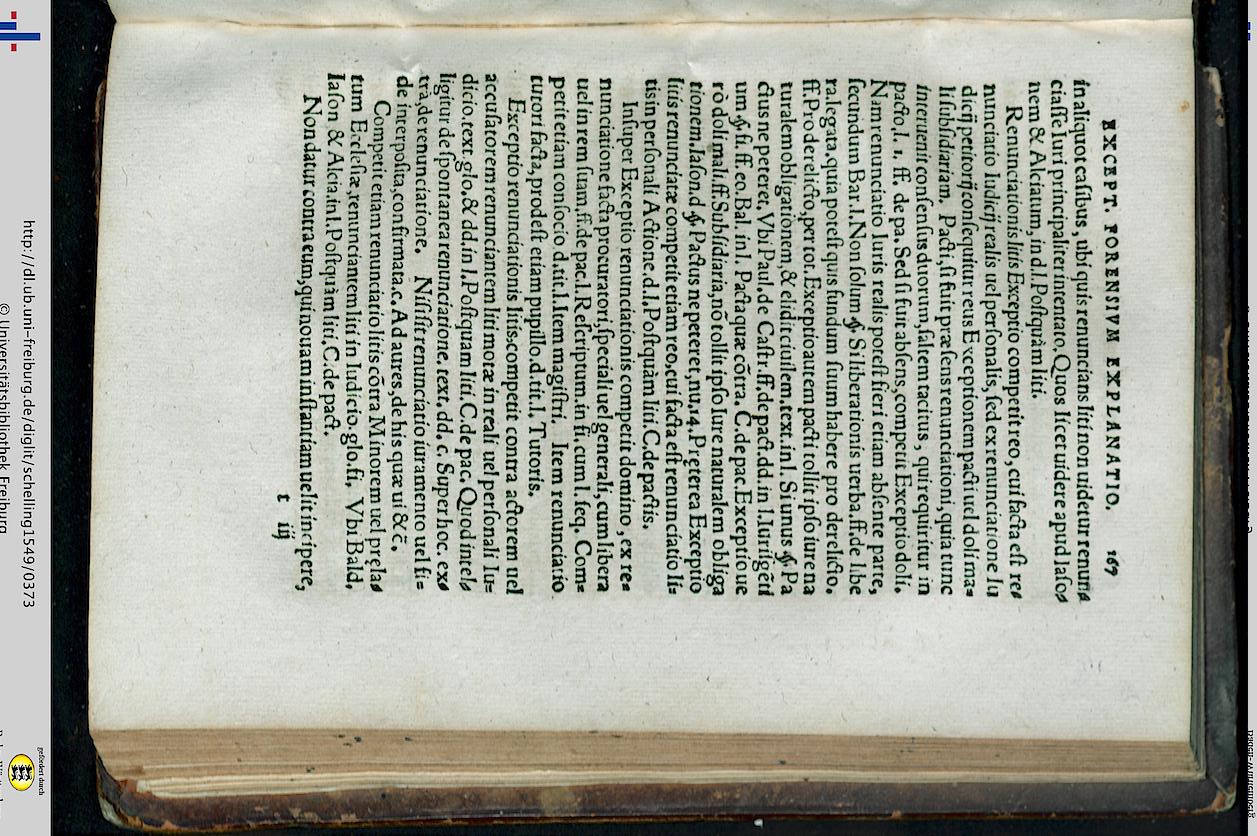 EXCEPT. FORENSIVM EXPLANATIO. 167
in aliquot casibus, ubi quis renuncians liti non uidetur renun⸗
ciasse Iuri principaliter intentato. Quos licet uidere apud Iaso⸗
nem & Alciatum, in d.l. Postquàm liti.
Renunciationis litis Exceptio competit reo, cui facta est re⸗
nunciatio Iudicij realis uel personalis, sed ex renunciatione Iu
dicij petitorij consequitur reus Exceptionem pacti uel doli ma⸗
li subsidiariam. Pacti, si fuit præsens renunciationi, quia tunc
interuenit consensus duorum, saltem tacitus, qui requiritur in
pacto.l. 1. ff. de pa. Sed si fuit absens, competit Exceptio doli.
Nam renunciatio Iuris realis potest fieri etiam absente parte,
secundum Bar. l. Non solum. §. Si liberationis uerba. ff. de libe
ra. legata. quia potest quis fundum suum habere pro derelicto.
ff. Pro derelicto, per tot. Exceptio autem pacti tollit ipso iure na
turalem obligationem, & elidit ciuilem. text. in l. Si unus. §. Pa
ctus ne peteret. Vbi Paul. de Castr. ff. de pact. dd. in l. Iurisgētī
um. §. fi. ff. eo. Bal. in l. Pacta quæ cōtra. C. de pac. Exceptio ue
rò doli mali. ff. Subsidiaria, nō tollit ipso Iure naturalem obliga
tionem. Iason. d. §. Pactus ne peteret, nu. 14. Pręterea Exceptio
litis renunciatæ competit etiam reo, cui facta est renunciatio li⸗
tis in personali Actione. d.l. Postquàm liti. C. de pactis.
Insuper Exceptio renunciationis competit domino, ex re⸗
nunciatione facta procuratori, speciali uel generali, cum libera
uel in rem suam. fi. de pac. l. Rescriptum. in. fi. cum l. seq. Com⸗
petit etiam consocio d. tit. l. Item magistri. Item renunciatio
tutori facta, prodest etiam pupillo. d. tit. l. Tutoris.
Exceptio renunciationis litis competit contra actorem uel
accusatorem renunciantem liti motæ in reali uel personali Iu⸗
dicio. text. glo. & dd. in l. Postquam liti. C. de pac. Quod intel⸗
ligitur de spontanea renunciatione. text. dd. c. Super hoc. ex⸗
trà, de renunciatione. Nisi sit renunciatio iuramento uel fi⸗
de interposita, confirmata. c. Ad aures, de his quæ ui &c.
Competit etiam renunciatio litis cōtra Minorem uel pręla⸗
tum Ecclesiæ, renunciantem liti in Iudicio. glo. fi. Vbi Bald.
Iason & Alcia. in. l. Postquàm liti, C. de pact.
Non datur contra eum, qui nouam instantiam uelit incipere,
t iij
http://dl.ub.uni-freiburg.de/diglit/schelling1549/0373
© Universitätsbibliothek Freiburg
gefördert durch